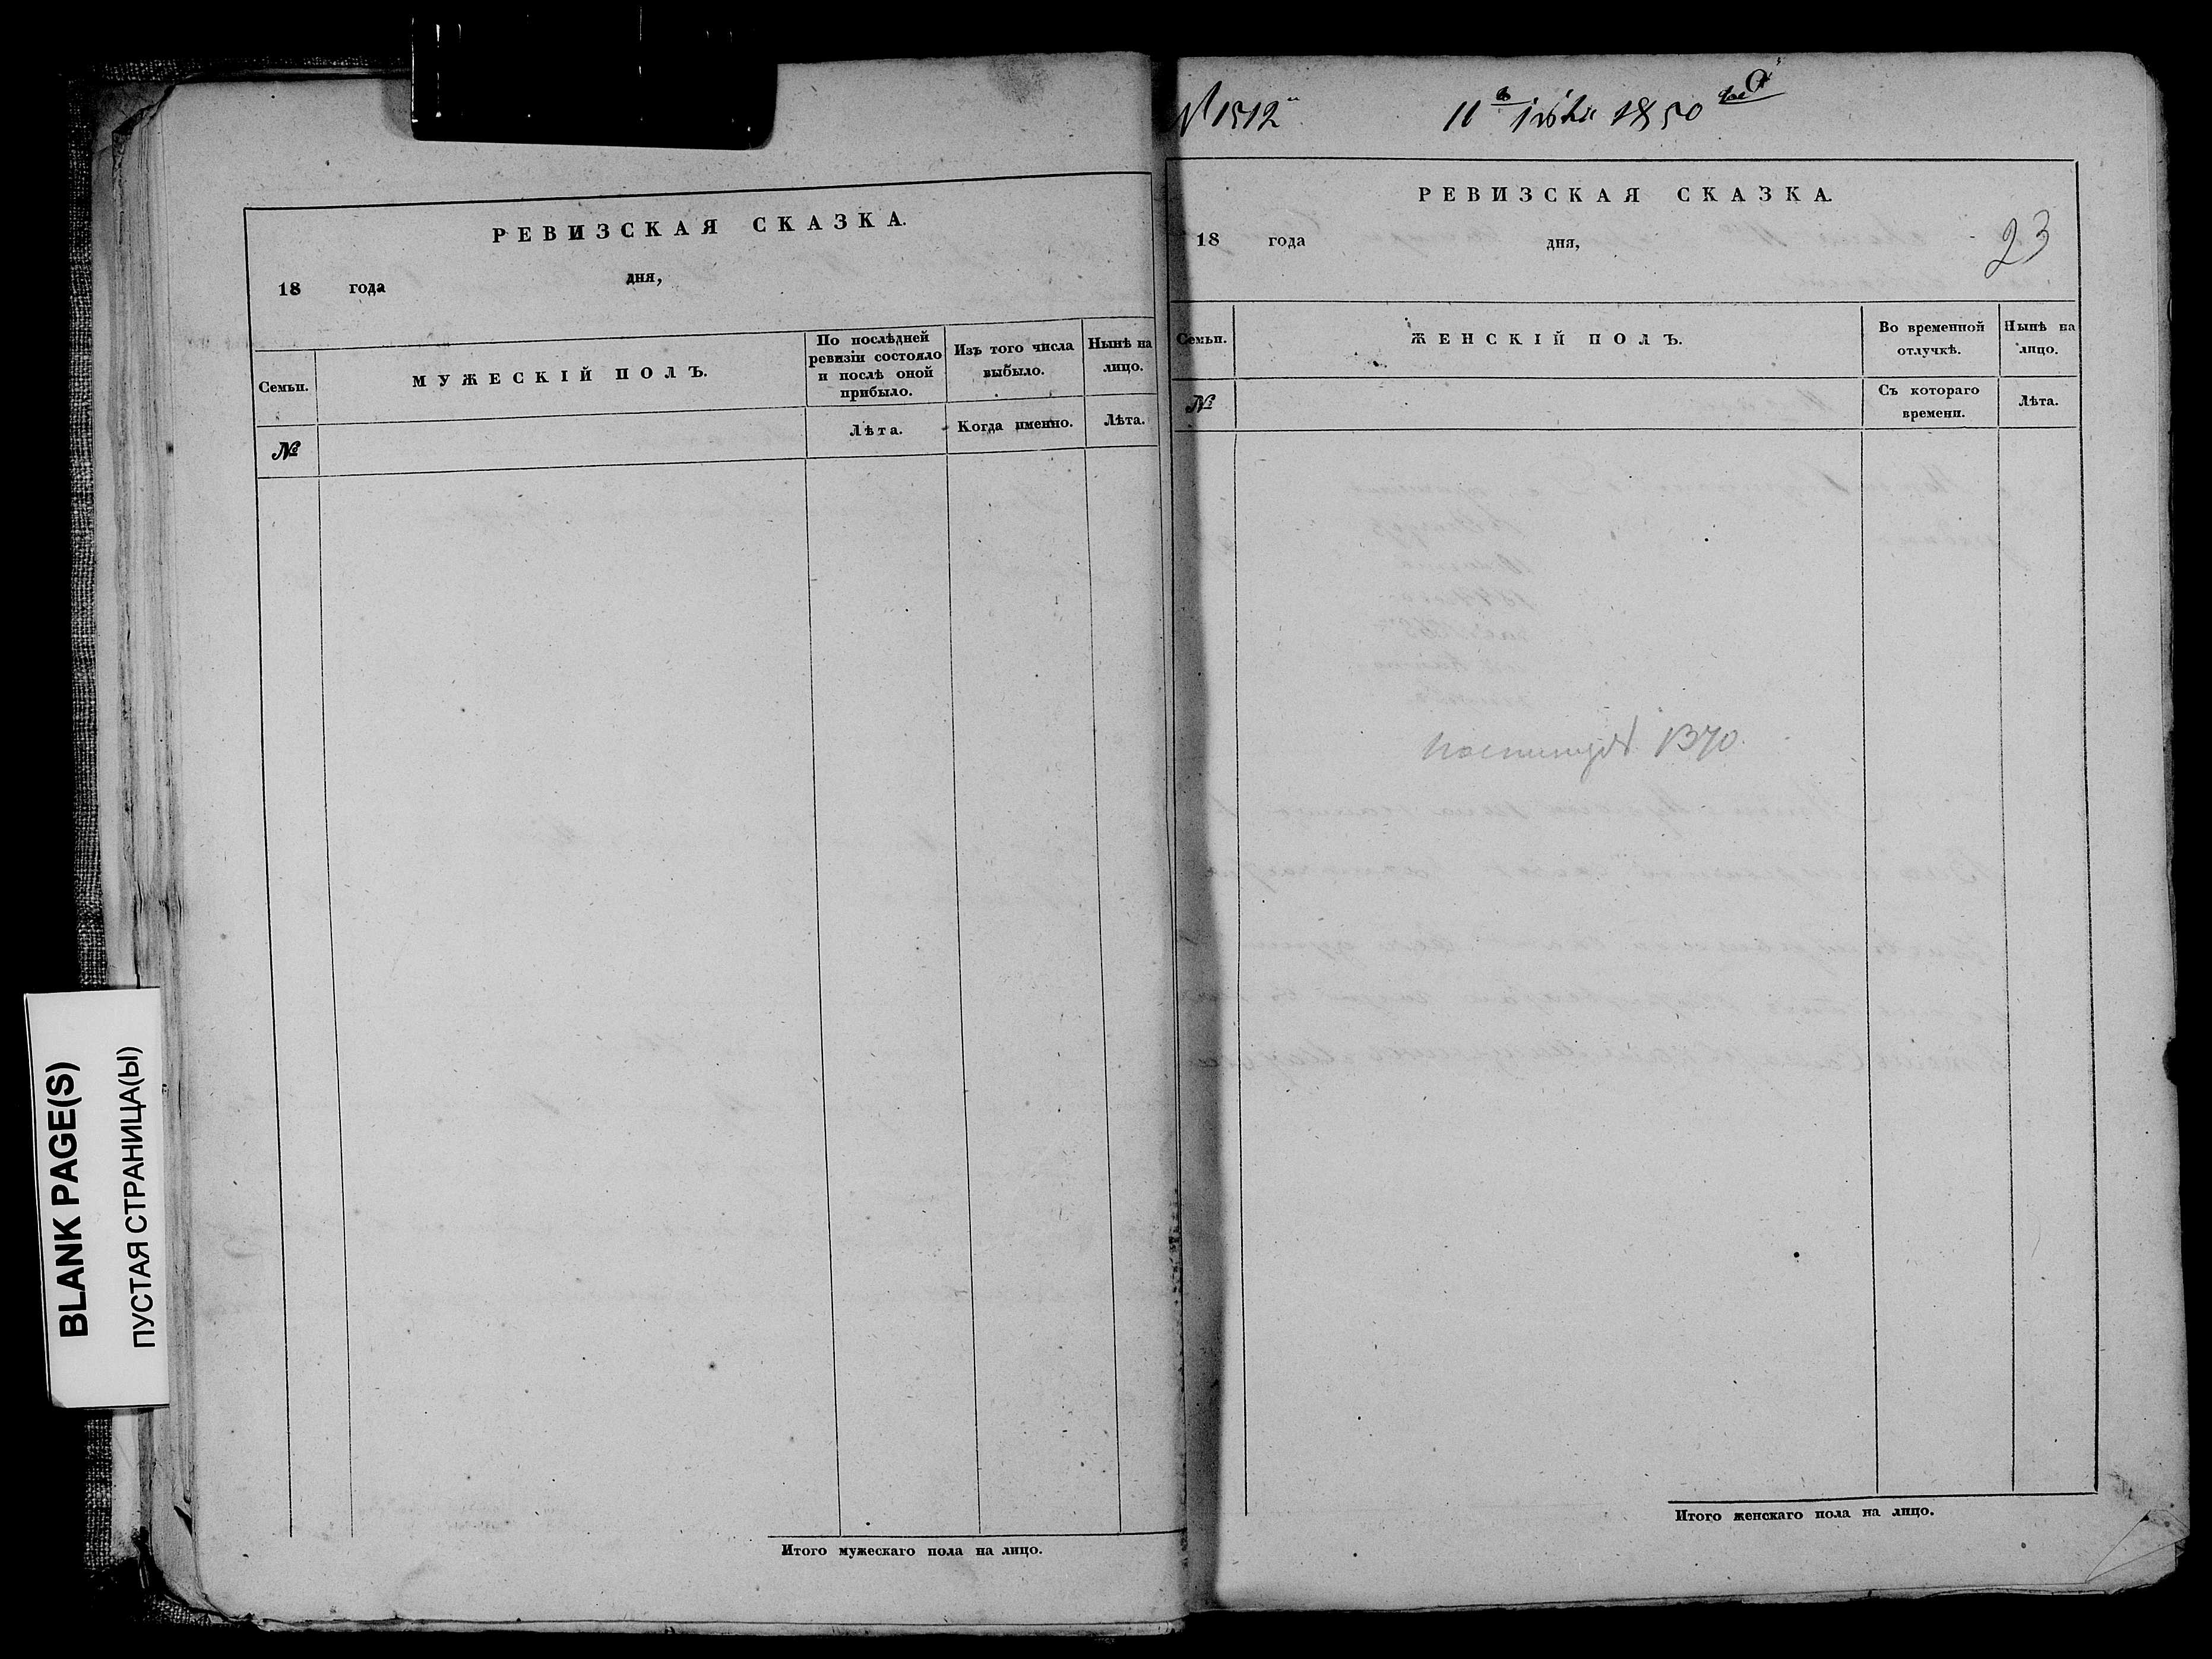 РЕВИЗСКАЯ СКАЗКА.
18 года дня,
Семьи.
МУЖЕСКІЙ ПОЛЪ.
По послѣдней
ревизіи состояло
и послѣ оной
прибыло.
Изъ того числа
выбыло.
Нынѣ на
лицо.
№
Лѣта.
Когда именно.
Лѣта.
Итого мужескаго пола на лицо.
BLANK PAGE(S)
ПУСТАЯ СТРАНИЦА(Ы)
№ 1512
11 1850
РЕВИЗСКАЯ СКАЗКА.
18 года дня,
23
Семьи.
ЖЕНСКІЙ ПОЛЪ.
Во временной
отлучкѣ.
Нынѣ на
лицо.
№
Съ котораго
времени.
Лѣта.
1370.
Итого женскаго пола на лицо.